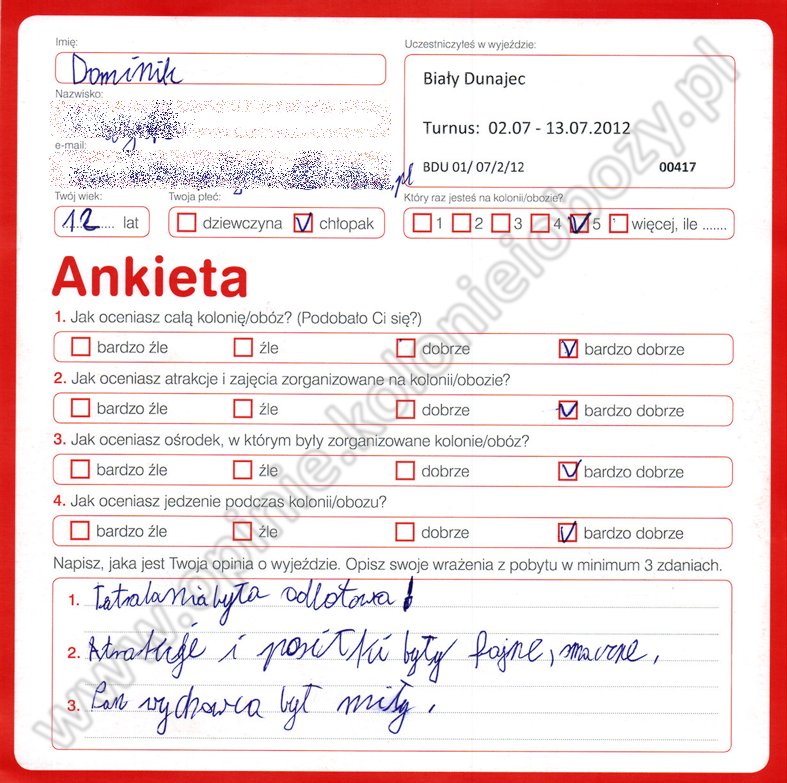 Imię:
Uczestniczyłeś w wyjeździe:
Dominik
Biały Dunajec
Nazwisko:
Turnus: 02.07 - 13.07.2012
e-mail:
BDU 01/ 07/2/12 00417
.pl
Twój wiek: Twoja płeć: Który raz jesteś na kolonii/obozie?
12 lat dziewczyna chłopak 1 2 3 4 5 więcej, ile .......
Ankieta
1. Jak oceniasz całą kolonię/obóz? (Podobało Ci się?)
bardzo źle źle dobrze bardzo dobrze
2. Jak oceniasz atrakcje i zajęcia zorganizowane na kolonii/obozie?
bardzo źle źle dobrze bardzo dobrze
3. Jak oceniasz ośrodek, w którym były zorganizowane kolonie/obóz?
bardzo źle źle dobrze bardzo dobrze
4. Jak oceniasz jedzenie podczas kolonii/obozu?
bardzo źle źle dobrze bardzo dobrze
Napisz, jaka jest Twoja opinia o wyjeździe. Opisz swoje wrażenia z pobytu w minimum 3 zdaniach.
1. była odlotowa!
2. i posiłki były fajne, smaczne,
3. Pan wychowca był miły.
www.opinie.kolonieiobozy.pl